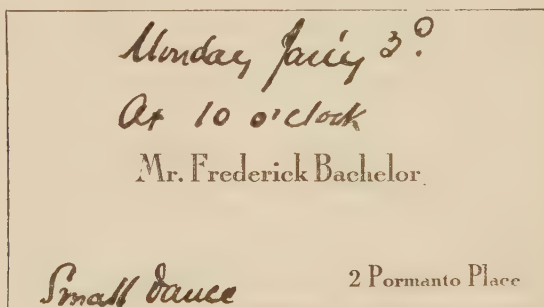 Monday Jan'y 3d
At 10 o'clock
Mr. Frederick Bachelor
Small dance
2 Pormanto Place